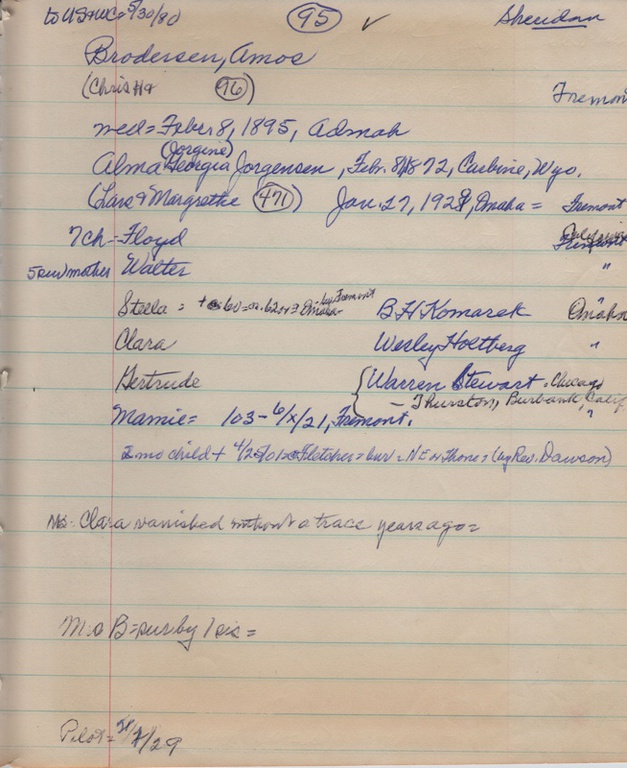 to USA 5/30/80 95 ✓ Sheridan
Brodersen, Amos
(Chris 96) Fremont
med = Febr 8, 1895, Admah
(Jorgine)
Alma Georgia Jorgensen, Febr. 8, 1872, Carbine, Wyo.
(Lars & Margrethe 471) Jan. 27, 1929, Omaha = Fremont
7 ch = Floyd
5 surv mother Walter "
Stella = Omaha Fremont B H Komarek Omaha
Clara Wesley Holtberg "
Gertrude Warren Stewart = Chicago
- Thurston, Burbank, Calif
Mamie = 103 - 6/X/21, Fremont. "
2 mo child + Fletcher = bur = NE of Thone = (by Rev. Dawson)
Ms. Clara vanished without a trace years ago =
M: o B = sur by 1 sis =
Pilot = /29